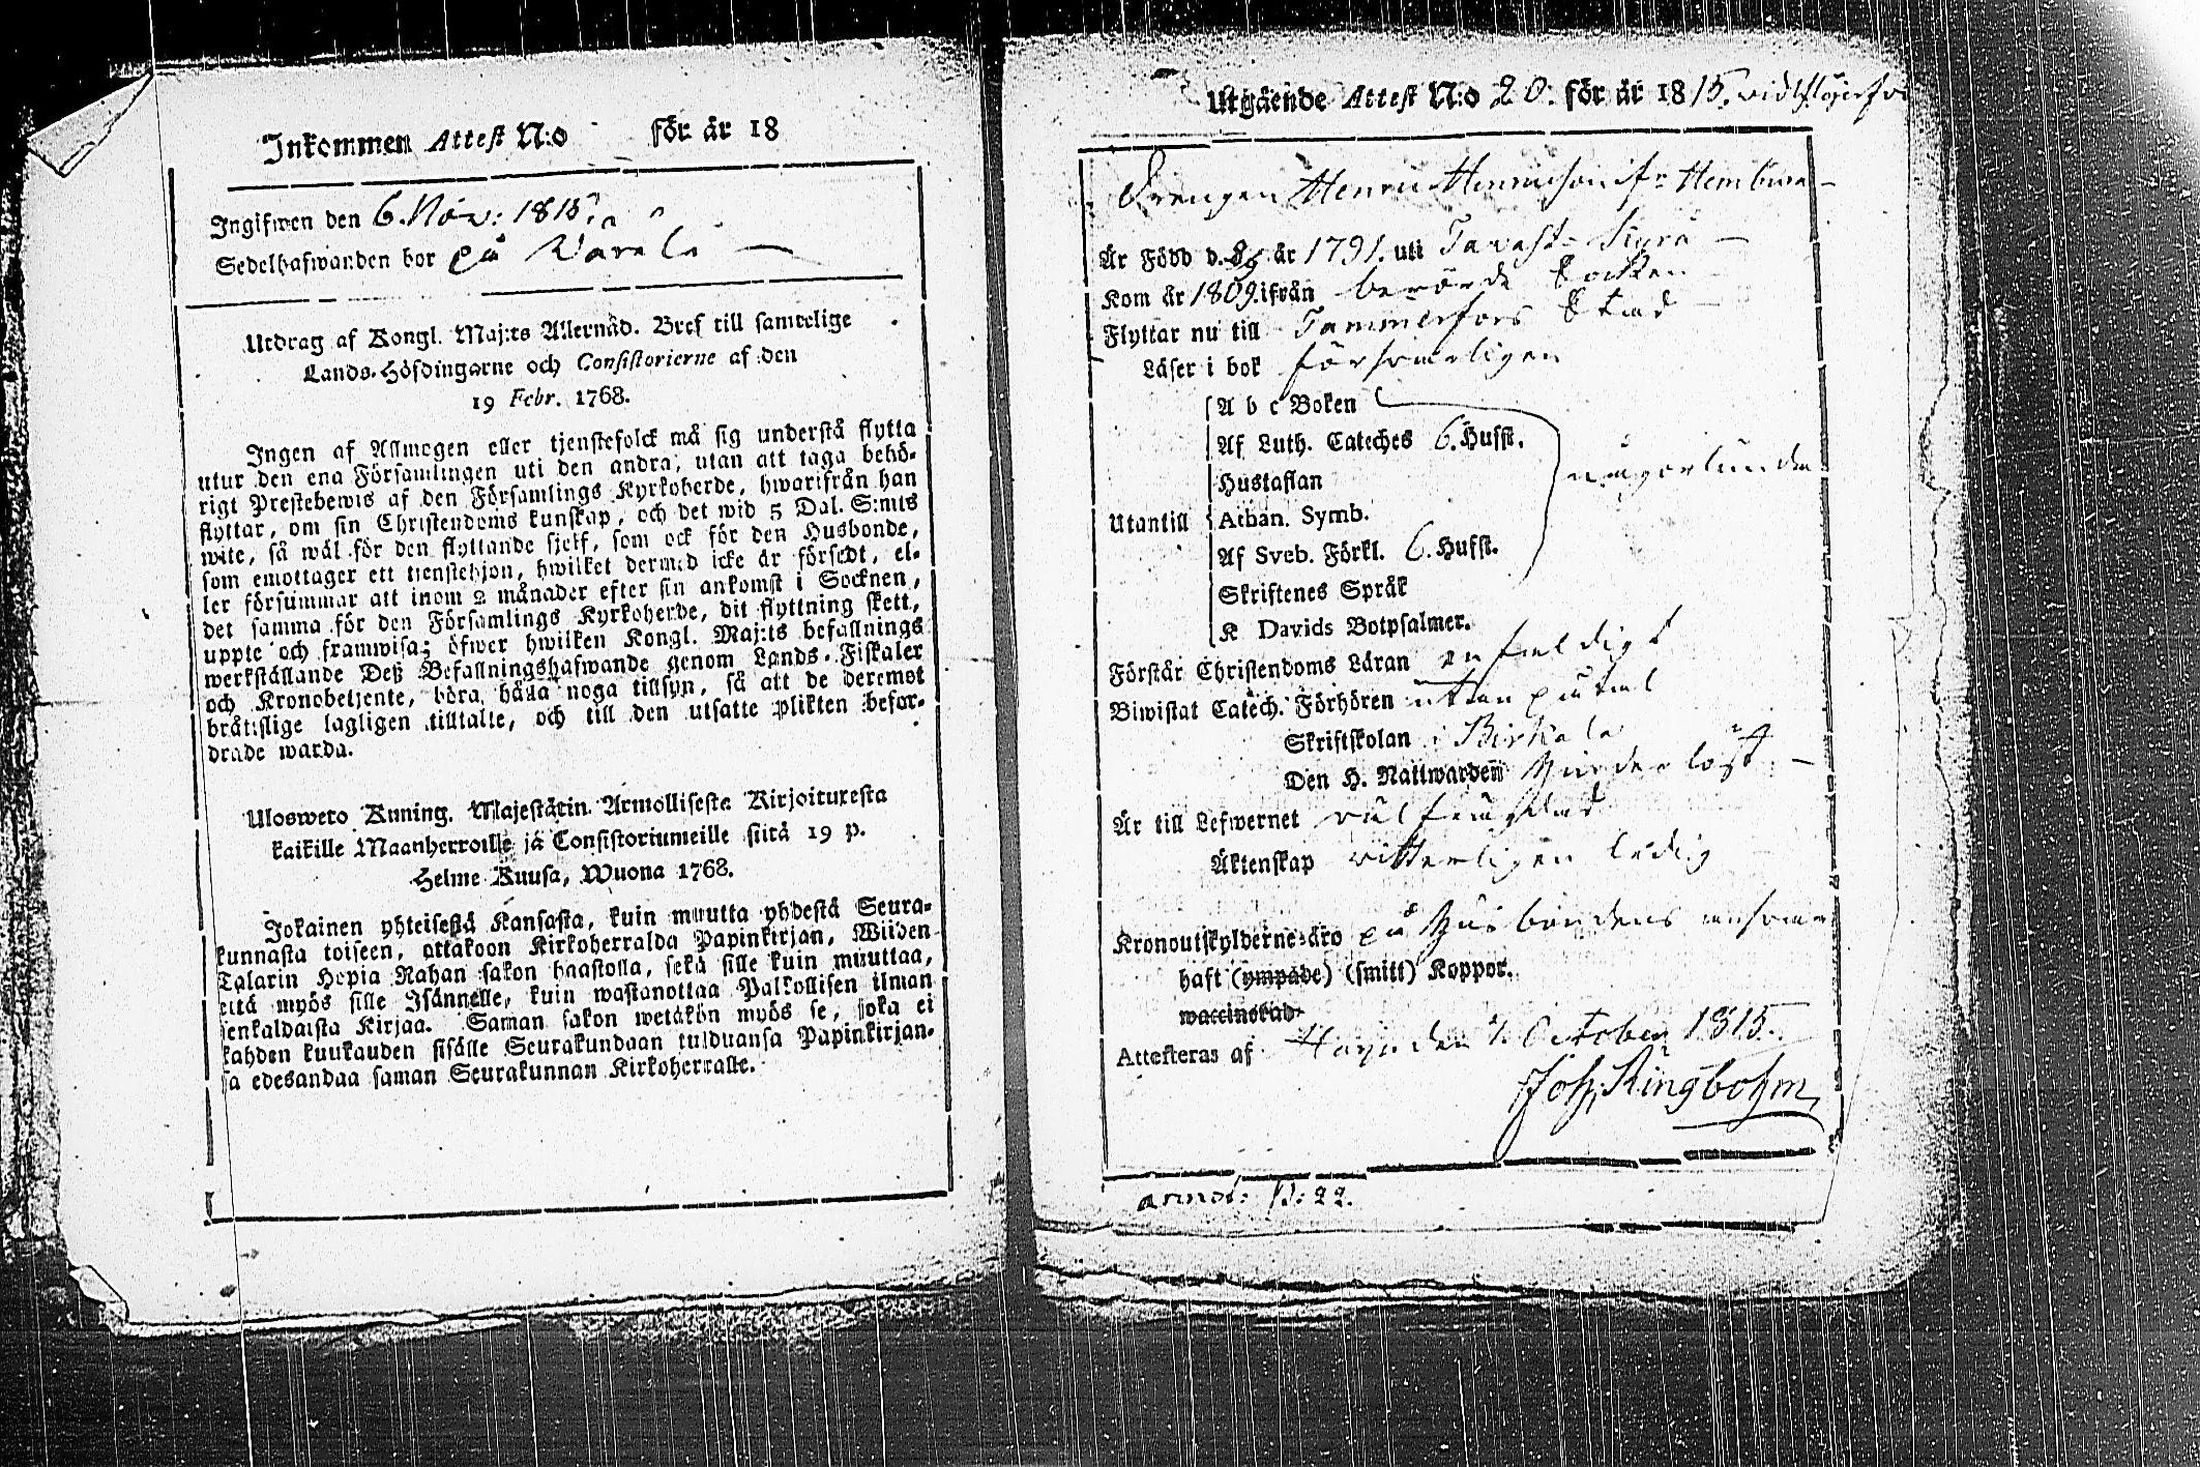 Inkommen Attest N:o för år 18
Ingifwen den 6. Nov: 1815.
Sedelhafwanden bor på Warala
Utdrag af Kongl. Maj:ts Allernåd. Bref till samtelige
Lands-Höfdingarne och Consistorierne af den
19 Febr. 1768.
Ingen af Allmogen eller tjenstefolck må sig understå flytta
utur den ena Församlingen uti den andra, utan att taga behö-
rigt Prestebewis af den Församlings Kyrkoherde, hwarifrån han
flyttar, om sin Christendoms kunskap, och det wid 5 Dal. S:mts
wite, så wäl för den flyttande sjelf, som ock för den Husbonde,
som emottager ett tjenstehjon, hwilket dermed icke är försedt, el-
ler försummar att inom 2 månader efter sin ankomst i Socknen,
det samma för den Församlings Kyrkoherde, dit flyttning skett,
uppte och framwisa; öfwer hwilken Kongl. Maj:ts befallnings
werkställande Deß Befallningshafwande genom Lands-Fiskaler
och Kronobetjente, böra hålla noga tillsyn, så att de deremot
bråtislige lagligen tilltalte, och till den utsatte plikten befor-
drade warda.
Ulosweto Kuning. Majestätin Armollisesta Kirjoituxesta
kaikille Maanherroille ja Consistoriumeille siitä 19 p.
Helme Kuusa, Wuona 1768.
Jokainen yhteisestä Kansasta, kuin muutta yhdestä Seura-
kunnasta toiseen, ottakoon Kirkoherralda Papinkirjan, Wiiden
Talarin Hopia Rahan sakon haastolla, sekä sille kuin muuttaa,
että myös sille Isännelle, kuin wastanottaa Palkollisen ilman
senkaldaista Kirjaa. Saman sakon wetäkön myös se, joka ei
kahden kuukauden sisälle Seurakundaan tulduansa Papinkirjan-
sa edesandaa saman Seurakunnan Kirkoherralle.
Utgående Attest N:o 20. för år 1815.
Drengen Henric Henricson ifr
Är Född d. år 1791. uti Tavast-
Kom år 1809. ifrån berörde Socken
Flyttar nu till Tammerfors Stad
Läser i bok försvarligen
A b c Boken
Af Luth. Cateches 6. Hufst. någorlunda
Hustaflan
Utantill Athan. Symb.
Af Sveb. Förkl. 6. Hufst.
Skriftenes Språk
K Davids Botpsalmer.
Förstår Christendoms Läran enfaldigt
Biwistat Catech. Förhören utan påtal
Skriftskolan i Birkala
Den H. Nattwarden
Är till Lefwernet välfrägdad
Äktenskap witterligen ledig
Kronoutskylderne äro på Husbondens answar
haft (ympade) (smitt) Koppor.
waccinerad
Attesteras af den October 1815.
Joh. Ringbohm
annot: P: 22.